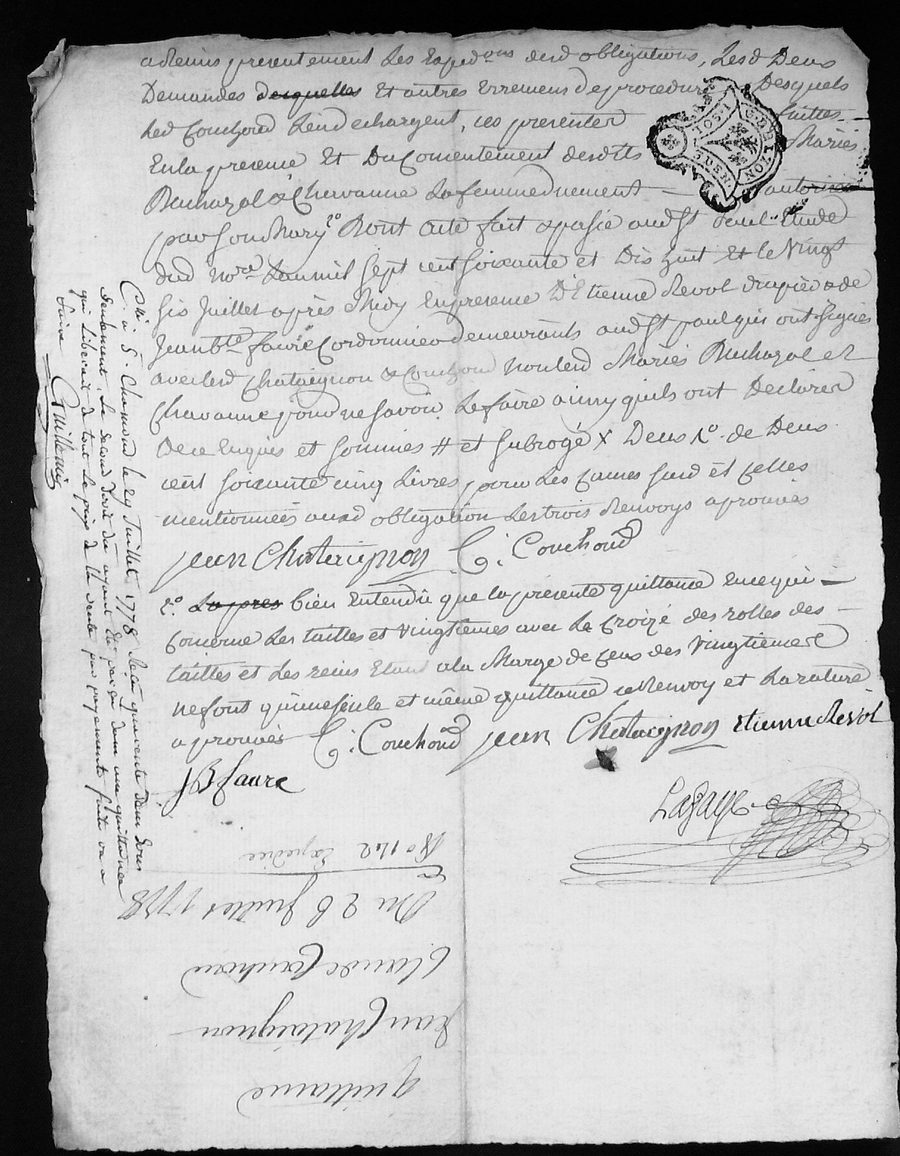 a Remis presentement les Exped.ons desd obligations, Lesd Deux
Demandes desquelles Et autres Erremens de procedure Desquels
Led Couchoud Len dechargent, ces presentes faittes
En la presence Et Du Consentement desdits Mariés
Buhazal & Chavanne La femme dhuement autorisée
par son Mary 2.o Dont acte fait & passé aud St Paul Etude
dud No.re Lan mil Sept cent Soixante et Dix huit Et le Vingt
Six Juillet après Midy En presence D'Etienne Revol drapier & de
Jean b.te faure Cordonnier demeurants aud St paul qui ont signés
avec Led Chataignon & Couchoud non Lesd Mariés Buhazal et
Chavanne pour ne savoir Le faire ainsy quils ont Declarer
De ce Enquis et Sommés # et Subrogé x Deux N.o de Deux
cent Soixante cinq Livres pour Les Causes Susd et Celles
mentionnées ausd obligation Les trois Renvoys aprouvés
jean Chataignon C: Couchoud
2.o La pres bien Entendu que la presente quittance En ce qui
Concerne Les tailles et Vingtiemes avec Le Croizé des rolles des
tailles et Les recus Etant a la Marge de Ceux des Vingtiemes
ne font qu'une seule et même quittance ce Renvoy et La rature
aprouvés C: Couchoud jean Chataignon etienne Revol
J B faure
Lafaye
C.llé à S. Chamond le 29 Juillet 1778 Reçu quarante deux sous
Seulement. Le Second droit du ayant Eté perçu dans une quittance
qui Liberait de tout Le prix de la Vente par payements faits ou a
faire Guillemin
N.o 142
Expediée
Du 26 Juillet 1778
Claude Couchoud
Jean Chataignon
Quittance